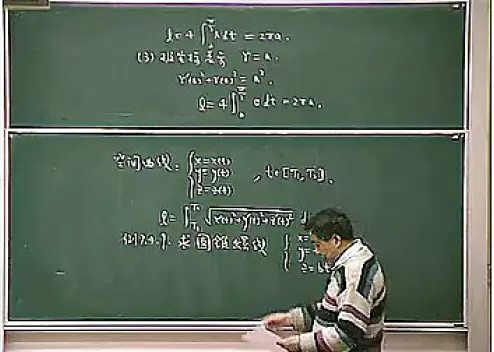 l = 4∫₀^{π/2} a dt = 2πa.
(3) 极坐标 表示 r = a.
r²(θ) + r'(θ)² = a².
l = 4∫₀^{π/2} a dt = 2πa.
空间曲线: { x = x(t) y = y(t) z = z(t) , t∈[T₁, T₂].
l = ∫_{T₁}^{T₂} √(x'(t)² + y'(t)² + z'(t)²) d
例7.4.9. 求圆锥螺线 { x = y = z = bt